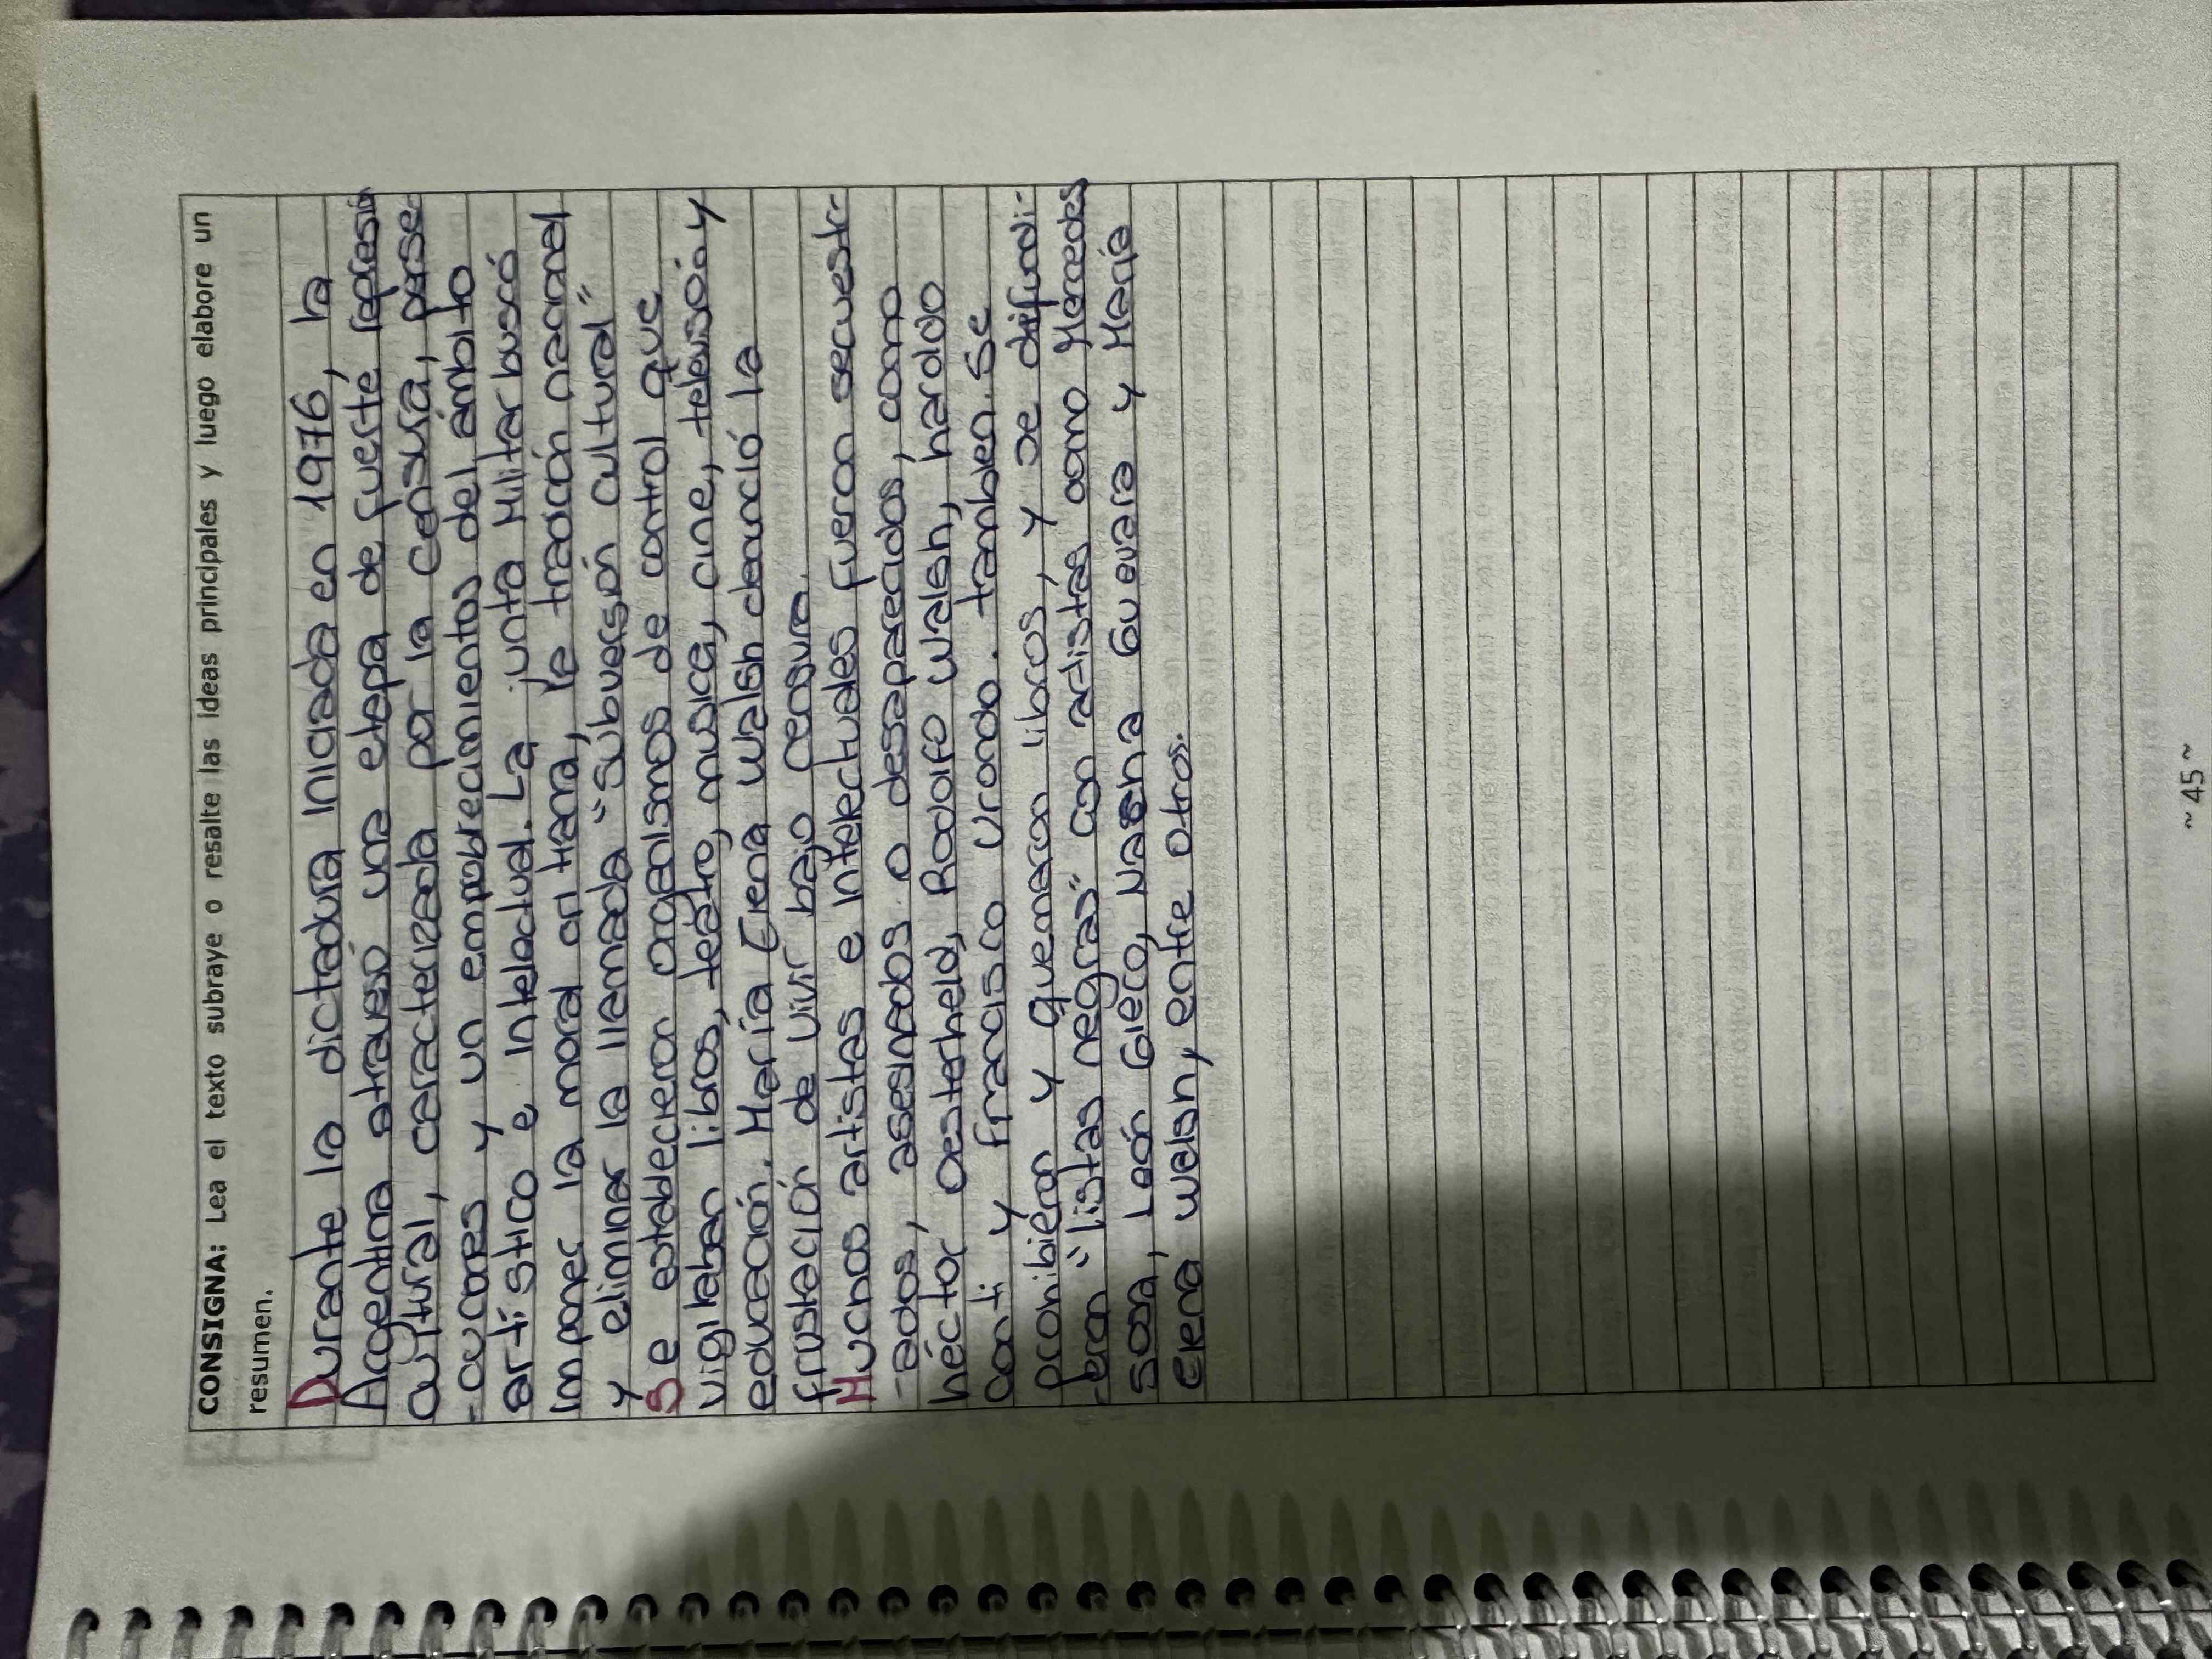 CONSIGNA: Lea el texto subraye o resalte las ideas principales y luego elabore un
resumen.
Durante la dictadura iniciada en 1976, la
Argentina atravesó una etapa de fuerte represión
cultural, caracterizada por la censura, perse-
-cuciones y un empobrecimientos del ámbito
artístico e intelectual. La junta Militar buscó
imponer la moral cristiana, la tradición nacional
y eliminar la llamada "subversión cultural"
Se establecieron organismos de control que
vigilaban libros, teatro, musica, cine, televisión y
educación. María Elena walsh denunció la
frustración de vivir bajo censura.
Muchos artistas e intelectuales fueron secuestr-
-ados, asesinados o desaparecidos, como
héctor oesterheld, Rodolfo walsh, haroldo
Conti y francisco Urondo. tambien se
prohibieron y quemaron libros, y se difundi-
-eron "listas negras" con artistas como Mercedes
sosa, León Gieco, Nacha Guevara y María
Elena walsh, entre otros.
~ 45 ~